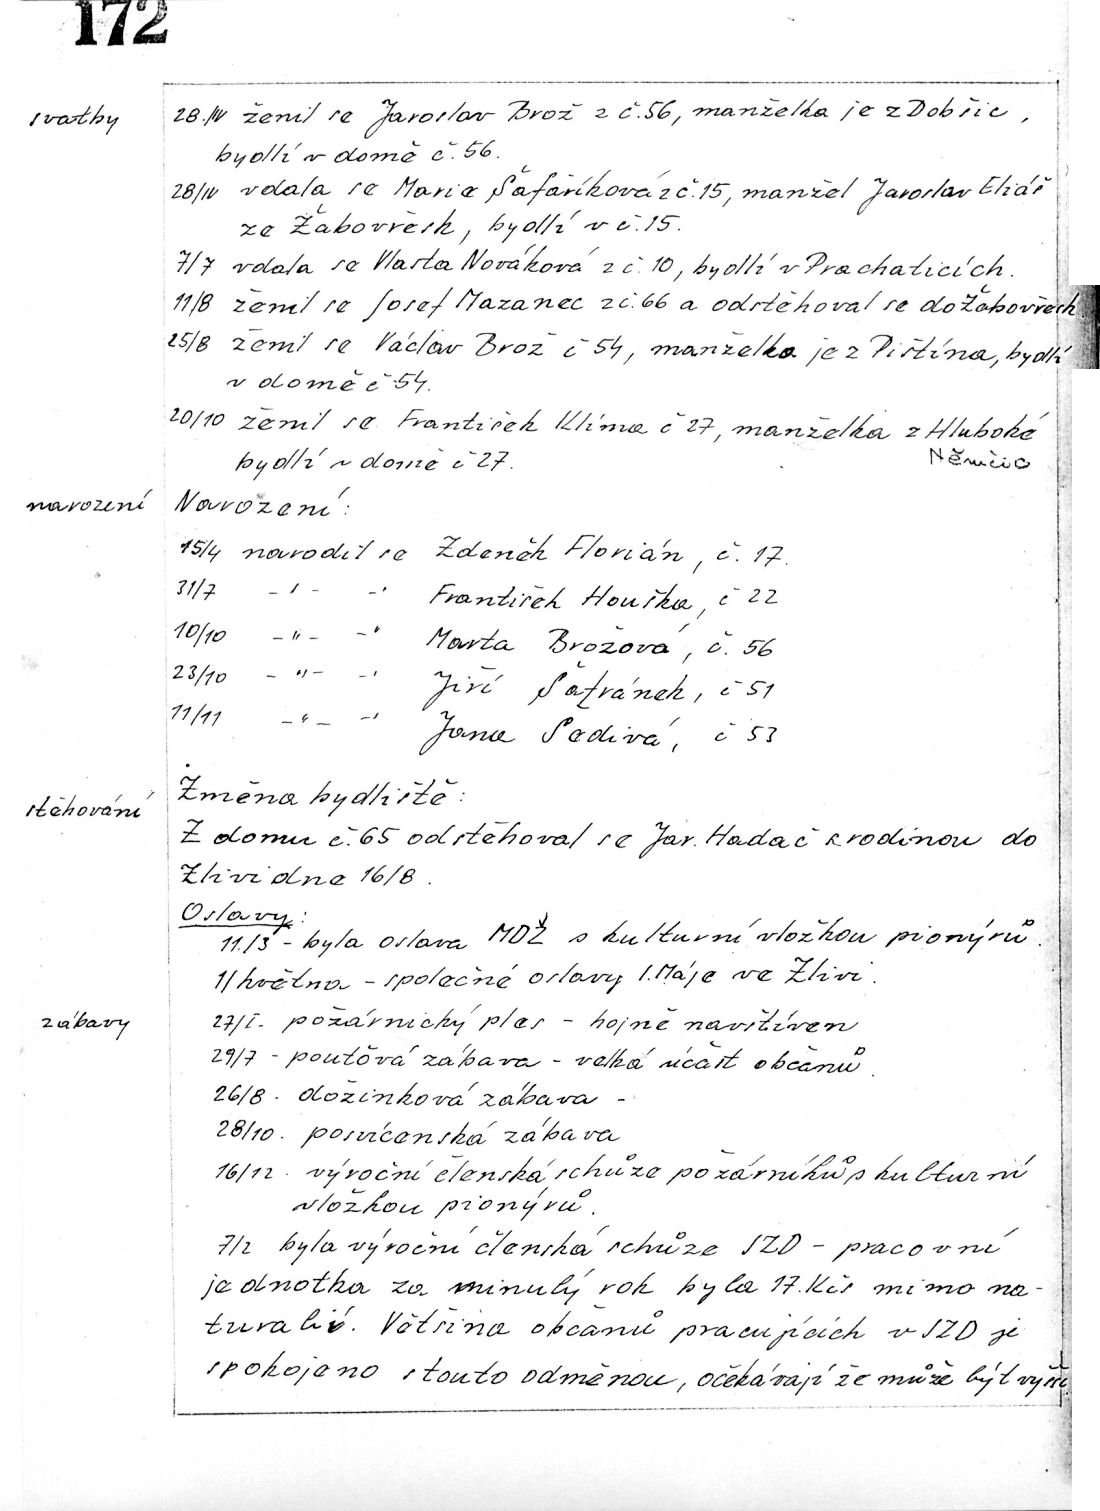 172
svatby
28.IV ženil se Jaroslav Brož z č.56, manželka je z Dobšic,
bydlí v domě č.56.
28/IV vdala se Marie Šafaříková z č.15, manžel Jaroslav Eliáš
ze Žabovřesk, bydlí v č.15.
7/7 vdala se Vlasta Nováková z č.10, bydlí v Prachaticích.
11/8 ženil se Josef Mazanec z č.66 a odstěhoval se do Žabovřesk.
25/8 ženil se Václav Brož č 54, manželka je z Pištína, bydlí
v domě č 54.
20/10 ženil se František Klíma č 27, manželka z Hluboké
bydlí v domě č 27. Němčic
narození Narození:
15/4 narodil se Zdeněk Florián, č. 17.
31/7 -"- -" František Houška, č 22
10/10 -"- -" Marta Brožová, č. 56
23/10 -"- -" Jiří Šafránek, č 51
11/11 -"- -" Jana Šedivá, č 53
stěhování Změna bydliště:
Z domu č.65 odstěhoval se Jar. Hadač s rodinou do
Zlivi dne 16/8.
Oslavy:
11./3 - byla oslava MDŽ s kulturní vložkou pionýrů.
1/května - společné oslavy 1. Máje ve Zlivi.
zábavy 27/I. požárnický ples - hojně navštíven
29/7 - pouťová zábava - velká účast občanů.
26/8. dožinková zábava -
28/10. posvícenská zábava
16/12. výroční členská schůze požárníků s kulturní
vložkou pionýrů.
7/2 byla výroční členská schůze JZD - pracovní
jednotka za minulý rok byla 17. Kčs mimo na-
turalií. Většina občanů pracujících v JZD je
spokojeno s touto odměnou, očekávají že může být vyšší